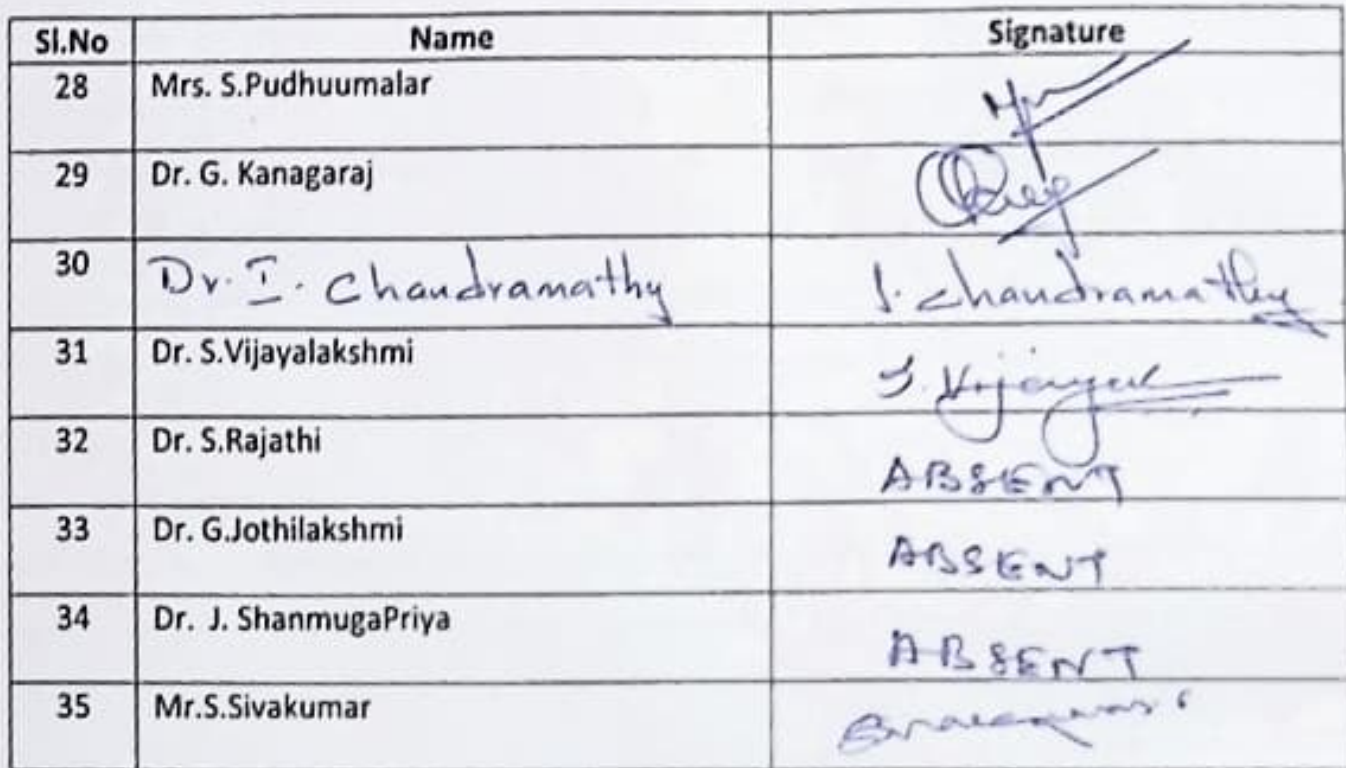 Sl.No Name Signature
28 Mrs. S.Pudhuumalar
29 Dr. G. Kanagaraj
30 Dr. I. Chandramathy I. Chandramathy
31 Dr. S.Vijayalakshmi S. Vijayal
32 Dr. S.Rajathi ABSENT
33 Dr. G.Jothilakshmi ABSENT
34 Dr. J. ShanmugaPriya ABSENT
35 Mr.S.Sivakumar